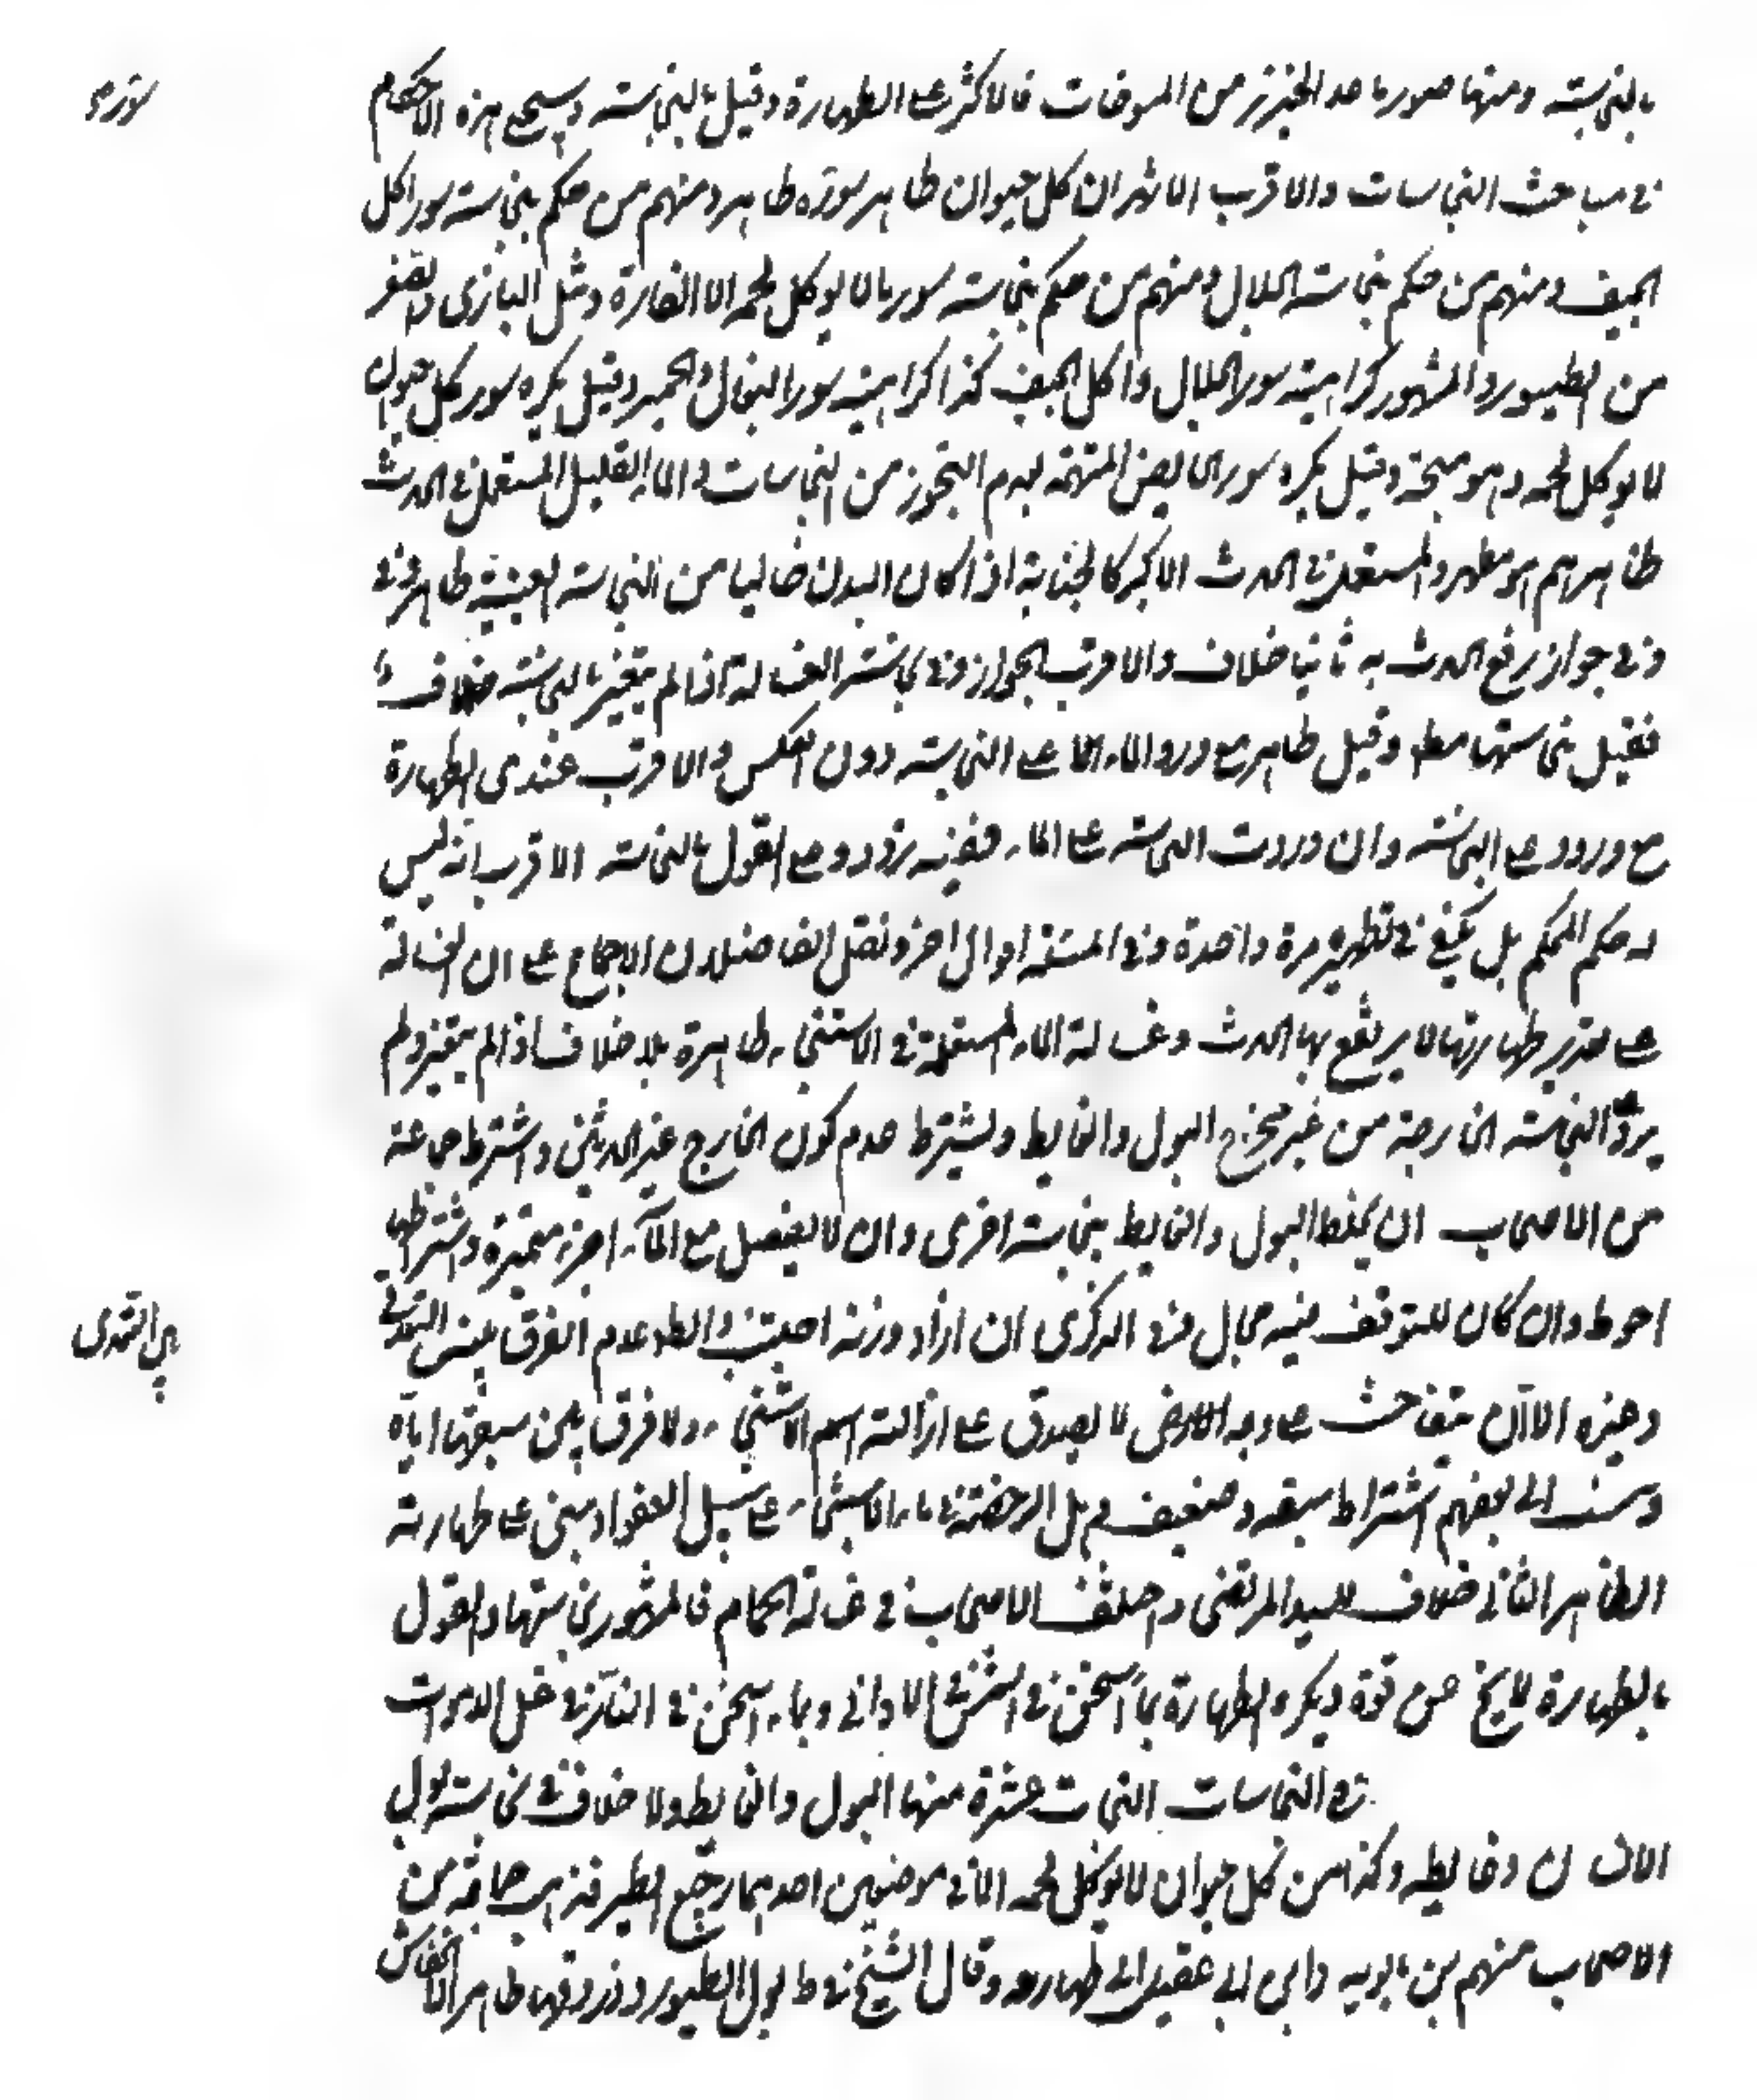 بالنجاسته ومنها سور ما عدا الخنزير من المسوخات فالاكثر على الطهارة وقيل بالنجاسته وسيجئ هذه الاحكام
في مباحث النجاسات والاقرب الاشهر ان كل حيوان طاهر سوره طاهر ومنهم من حكم بنجاسته سور اكل
الجيف ومنهم من حكم بنجاسته الجلال ومنهم من حكم بنجاسته سور ما لا يوكل لحمه الا الفارة ومثل البازى والصقر
من الطيور والمشهور كراهيته سور الجلال واكل الجيف كذا كراهيته سور البغال والحمير وقيل يكره سور كل حيوان
لا يوكل لحمه وهو متجه وقيل يكره سور الحايض المتهمه بعدم التحرز من النجاسات والماء القليل المستعمل في الحدث
طاهر مطهر والمستعمل في الحدث الاكبر كالجنابة اذا كان البدن خاليا من النجاسته العينية طاهر
وفي جواز رفع الحدث به ثانيا خلاف والاقرب الجواز وفي نجاسته الغسالة اذا لم يتغير بالنجاسته خلاف
فقيل بنجاستها مط وقيل طاهر مع ورود الماء على النجاسته دون العكس والاقرب عندى الطهارة
مع وروده على النجاسته وان وردت النجاسته على الماء ففيه تردد وعلى القول بالنجاسته الاقرب انه ليس
له حكم المحل بل يكفي في تطهيره مرة واحدة وفي المعتبر و نقل الفاضلان الاجماع على ان الغسالة
على تقدير طهارتها لا يرتفع بها الحدث وغسالة الماء المستعملة في الاستنجاء طاهرة بلا خلاف اذا لم يتغير ولم
يرد النجاسته الخارجة من غير مخرج البول والغايط ويشترط عدم كون الخارج غير الحدثين واشترط جماعة
من الاصحاب ان لا يخلط البول والغايط بنجاسته اخرى وان لا ينفصل مع الماء اجزاء متميزة واشتراطهما
احوط وان كان للتوقف فيه مجال وفي الذكرى ان زاد وزنه اجتنب والظ عدم الفرق بين التعدى
وغيره الا ان يتفاحش على وجه لا يصدق على ازالته اسم الاستنجاء ولا فرق بين سبقها اياه
ونسب الى بعضهم اشتراط سبقه وهو ضعيف وهل الرخصة في ماء الاستنجاء على سبيل العفو او مبنى على طهارته
الظاهر الثاني خلاف للسيد المرتضى واختلف الاصحاب في غسالة الحمام فالمشهور نجاستها والقول
بالطهارة لا يخ عن قوة ويكره الطهارة بماء اسخن في الشمس في الاواني وبماء اسخن في النار في غسل الاموات
في النجاسات النجاسات عشرة منها البول والغايط ولا خلاف في نجاسته بول
الانسان وغايطه وكذا من كل حيوان لا يوكل لحمه الا في موضعين احدهما رجيع الطير فذهب جماعة من
الاصحاب منهم بن بابويه وابن ابي عقيل الى طهارته وقال الشيخ في ط بول الطيور وذروقها طاهر الا الخفاش
سوره
بين المتعدى